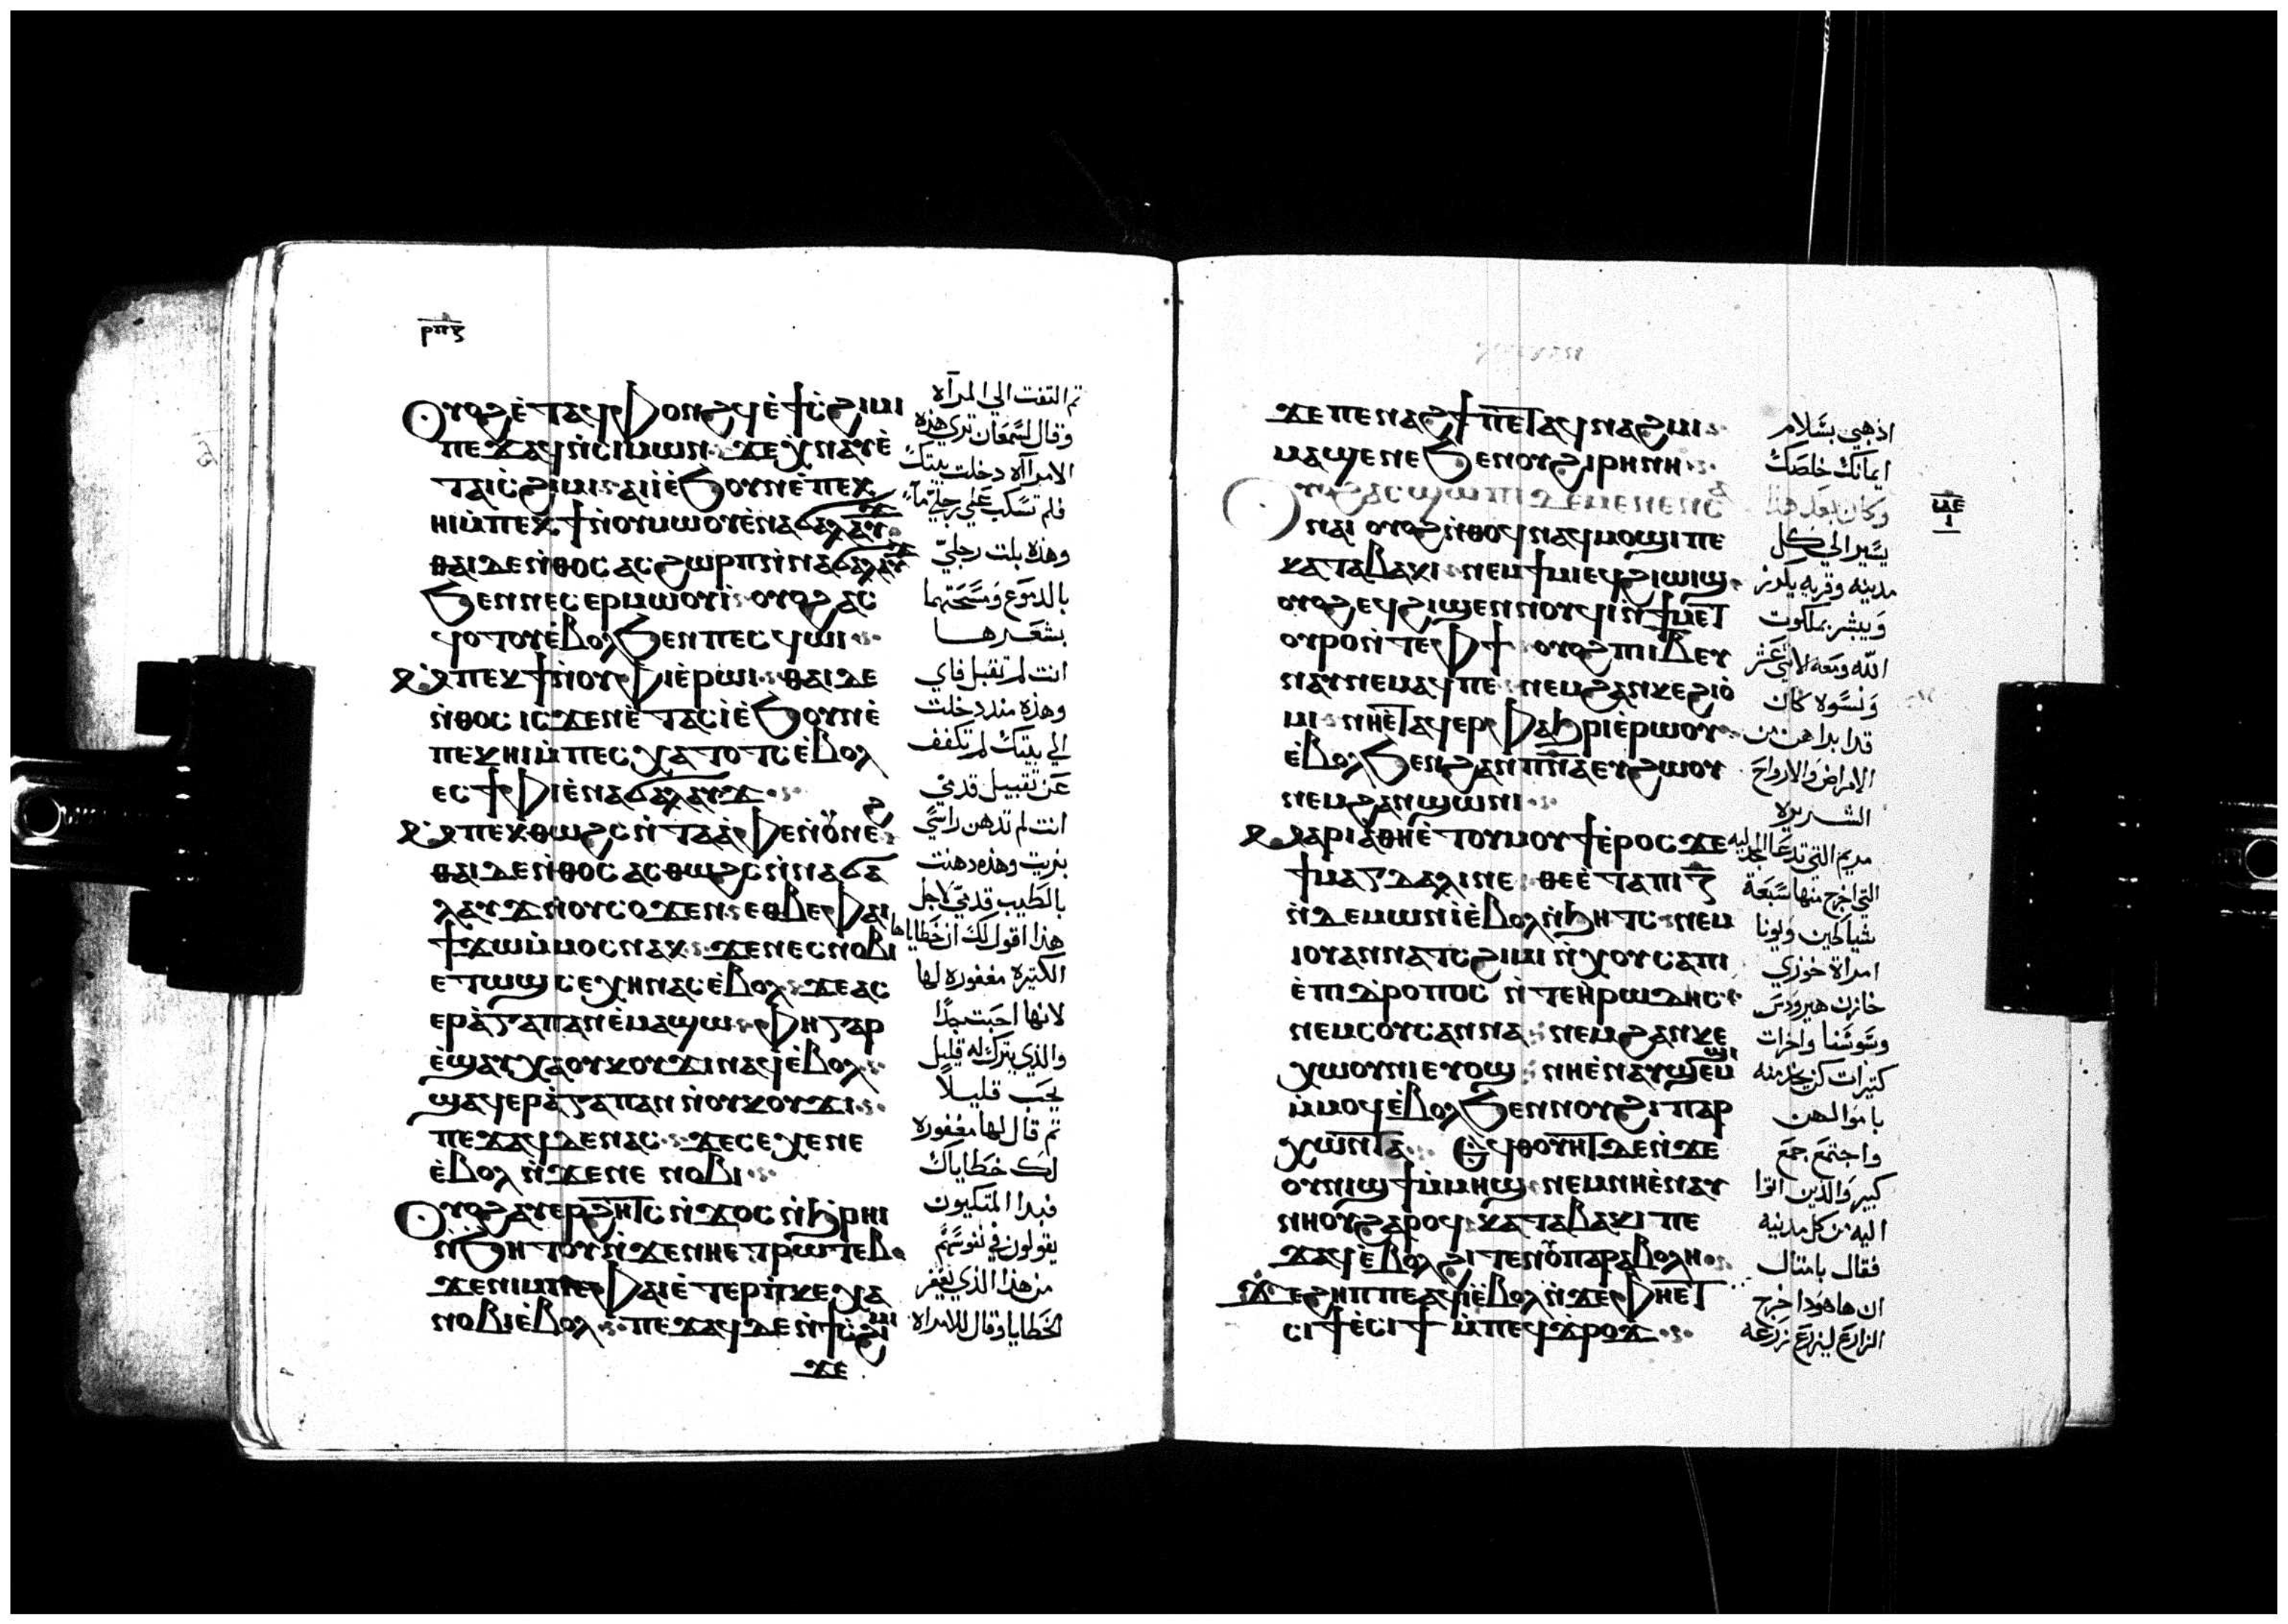 ⲣⲡⲋ
Ⲟⲩⲟϩ ⲉ̀ⲧⲁϥⲫⲟⲛϩϥ ⲉ̀ϯⲥ̀ϩⲓⲙⲓ
ⲡⲉϫⲁϥ ⲛ̀ⲥⲓⲙⲱⲛ ϫⲉ ⲭ̀ⲛⲁⲩ ⲉ̀
ⲧⲁⲓⲥ̀ϩⲓⲙⲓ ⲁⲓⲓ̀ ⲉ̀ϧⲟⲩⲛ ⲉ̀ⲡⲉⲕ
ⲏⲓ ⲙ̀ⲡⲉⲕϯ ⲛⲟⲩⲙⲱⲟⲩ ⲉ̀ⲛⲁϭⲁⲗⲁⲩϫ
ⲑⲁⲓ ⲇⲉ ⲛ̀ⲑⲟⲥ ⲁⲥϩⲱⲣⲡ ⲛ̀ⲛⲁϭⲁⲗⲁⲩϫ
ϧⲉⲛ ⲛⲉⲥⲉⲣⲙⲱⲟⲩⲓ̀ ⲟⲩⲟϩ ⲁⲥ
ϥⲟⲧⲟⲩ ⲉ̀ⲃⲟⲗ ϧⲉⲛ ⲡⲉⲥϥⲱⲓ
ⲙ̀ⲡⲉⲕϯ ⲛⲟⲩⲫⲓ ⲉ̀ⲣⲱⲓ ⲑⲁⲓ ⲇⲉ
ⲛ̀ⲑⲟⲥ ⲓⲥϫⲉⲛ ⲉ̀ⲧⲁⲥⲓ̀ ⲉ̀ϧⲟⲩⲛ ⲉ̀
ⲡⲉⲕⲏⲓ ⲙ̀ⲡⲉⲥⲭⲁⲧⲟⲧⲥ ⲉ̀ⲃⲟⲗ
ⲉⲥϯⲫⲓ ⲉ̀ⲛⲁϭⲁⲗⲁⲩϫ
ⲙ̀ⲡⲉⲕⲑⲱϩⲥ ⲛ̀ⲧⲁⲁ̀ⲫⲉ ⲛ̀ⲟⲩⲛⲉϩ
ⲑⲁⲓ ⲇⲉ ⲛ̀ⲑⲟⲥ ⲁⲥⲑⲱϩⲥ ⲛ̀ⲛⲁϭⲁ
ⲗⲁⲩϫ ⲛⲟⲩⲥⲟϫⲉⲛ ⲉⲑⲃⲉ ⲫⲁⲓ
ϯϫⲱ ⲙ̀ⲙⲟⲥ ⲛⲁⲕ ϫⲉ ⲛⲉⲥⲛⲟⲃⲓ
ⲉⲧⲱϣ ⲥⲉⲭⲏ ⲛⲁⲥ ⲉ̀ⲃⲟⲗ ϫⲉ ⲁⲥ
ⲉⲣⲁ̀ⲅⲁⲡⲁⲛ ⲉ̀ⲙⲁϣⲱ ⲫⲏ ⲅⲁⲣ
ⲉ̀ϣⲁⲩⲭⲁ ⲟⲩⲕⲟⲩϫⲓ ⲛⲁϥ ⲉ̀ⲃⲟⲗ
ϣⲁϥⲉⲣⲁ̀ⲅⲁⲡⲁⲛ ⲛⲟⲩⲕⲟⲩϫⲓ
ⲡⲉϫⲁϥ ⲇⲉ ⲛⲁⲥ ϫⲉ ⲥⲉⲭⲉ ⲛⲉ
ⲉ̀ⲃⲟⲗ ⲛ̀ϫⲉ ⲛⲉⲛⲟⲃⲓ
Ⲟⲩⲟϩ ⲁⲩⲉⲣϩⲏⲧⲥ ⲛ̀ϫⲟⲥ ⲛ̀ϧⲣⲏⲓ
ⲛ̀ϧⲏⲧⲟⲩ ⲛ̀ϫⲉ ⲛⲏⲉⲧⲣⲱⲧⲉⲃ
ϫⲉ ⲛⲓⲙ ⲡⲉ ⲫⲁⲓ ⲉ̀ⲧⲉⲣⲡ̀ⲕⲉⲭⲁ
ⲛⲟⲃⲓ ⲉ̀ⲃⲟⲗ ⲡⲉϫⲁϥ ⲇⲉ ⲛ̀ϯⲥ̀ϩⲓⲙⲓ
ϫⲉ
ثم التفت الي المرآه
وقال لسمعان تري هذه
الامرآه دخلت بيتك
فلم تسكب علي رجليّ مآءً
وهذه بلت رجليّ
بالدموع ومسحتهما
بشعرها
انت لم تقبل فاي
وهذه منذ دخلت
الي بيتك لم تكفف
عن تقبيل قدمي
انت لم تدهن راسي
بزيت وهذه دهنت
بالطيب قدميّ لاجل
هذا اقول لك ان خطاياها
الكتيرة مغفوره لها
لانها احبت جدًا
والذي يترك له قليل
يحب قليلاً
ثم قال لها مغفوره
لك خطاياك
فبدا المتكيون
يقولون في نفوسهم
من هذا الذي يغفر
الخطايا وقال للامراه
ϫⲉ ⲡⲉⲛⲁϩϯ ⲡⲉⲧⲁϥⲛⲁϩⲙⲓ
ⲙⲁϣⲉ ⲛⲉ ϧⲉⲛ ⲟⲩϩⲓⲣⲏⲛⲏ
Ⲟⲩⲟϩ ⲁⲥϣⲱⲡⲓ ⲙⲉⲛⲉⲛⲥⲁ
ⲛⲁⲓ ⲟⲩⲟϩ ⲛ̀ⲑⲟϥ ⲛⲁϥⲙⲟϣⲓ ⲡⲉ
ⲕⲁⲧⲁ ⲃⲁⲕⲓ ⲛⲉⲙ ϯⲙⲓ ⲉϥϩⲓⲱⲓϣ
ⲟⲩⲟϩ ⲉϥϩⲓϣⲉⲛⲛⲟⲩϥⲓ ⲛ̀ϯⲙⲉⲧ
ⲟⲩⲣⲟ ⲛ̀ⲧⲉ ⲫϯ ⲟⲩⲟϩ ⲡⲓⲓⲃ ⲉⲩ
ⲛⲁⲩ ⲛⲉⲙⲁϥ ⲡⲉ ⲛⲉⲙ ϩⲁⲛⲕⲉϩⲓⲟ̀
ⲙⲓ ⲛⲏⲉ̀ⲧⲁϥⲉⲣⲫⲁϧⲣⲓ ⲉ̀ⲣⲱⲟⲩ
ⲉ̀ⲃⲟⲗ ϧⲉⲛ ϩⲁⲛⲡⲛⲁ ⲉⲩϩⲱⲟⲩ
ⲛⲉⲙ ϩⲁⲛϣⲱⲛⲓ
ⲙⲁⲣⲓⲁ ⲑⲏⲉ̀ⲧⲟⲩⲙⲟⲩϯ ⲉ̀ⲣⲟⲥ ϫⲉ
ϯⲙⲁⲅⲇⲁⲗⲓⲛⲉ ⲑⲉⲉ̀ⲧⲁ ⲡⲓⲍ
ⲛ̀ⲇⲉⲙⲱⲛ ⲓ̀ ⲉ̀ⲃⲟⲗ ⲛ̀ϧⲏⲧⲥ ⲛⲉⲙ
ⲓⲟⲩⲁⲛⲛⲁ ⲧⲥϩⲓⲙⲓ ⲛ̀ⲭⲟⲩⲥⲁ ⲡⲓ
ⲉ̀ⲡⲓⲇⲣⲟⲡⲟⲥ ⲛ̀ⲧⲉ ⲏ̀ⲣⲱⲇⲏⲥ
ⲛⲉⲙ ⲥⲟⲩⲥⲁⲛⲛⲁ ⲛⲉⲙ ϩⲁⲛⲕⲉ
ⲭⲱⲟⲩⲛⲓ ⲉⲩⲟϣ ⲛⲏⲉ̀ⲛⲁⲩϣⲉⲙϣⲓ
ⲙ̀ⲙⲟϥ ⲉ̀ⲃⲟⲗ ϧⲉⲛ ⲛⲟⲩϩⲓⲡⲁⲣ
ⲭⲱⲛⲧⲁ Ⲉϥⲑⲟⲩⲏⲧ ⲇⲉ ⲛ̀ϫⲉ
ⲟⲩⲛⲓϣϯ ⲙ̀ⲙⲏϣ ⲛⲉⲙ ⲛⲏⲉ̀ⲛⲁⲩ
ⲛⲏⲟⲩ ϩⲁⲣⲟϥ ⲕⲁⲧⲁ ⲃⲁⲕⲓ ⲡⲉ
ϫⲁϥ ⲉ̀ⲃⲟⲗ ϩⲓⲧⲉⲛ ⲟⲩⲡⲁⲣⲁⲃⲟⲗⲏ
ϫⲉ ϩⲏⲡⲡⲉ ⲁϥⲓ̀ ⲉ̀ⲃⲟⲗ ⲛ̀ϫⲉ ⲫⲏⲉⲧ
ⲥⲓϯ ⲉ̀ⲥⲓϯ ⲙ̀ⲡⲉϥϫ̀ⲣⲟϫ
اذهبي بسلام
ايمانك خلصك
وكان بعد هذا
يسير الي كل
مدينه وقريه يكرز
ويبشر بملكوت
الله ومعه الاثني عشر
ونسوه كان
قد ابراهن من
الامراض والارواح
الشريره
مريم التي تدعا المجدليه
التي اخرج منها سبعة
شياطين ويونا
امراة خوزي
خازن هيرودس
وسوسنا واخرات
كتيرات كن يخدمنه
باموالهن
واجتمع جمع
كبير والذين اتوا
اليه من كل مدينه
فقال بامتال
ان هاهوذا خرج
الزارع ليزرع زرعه